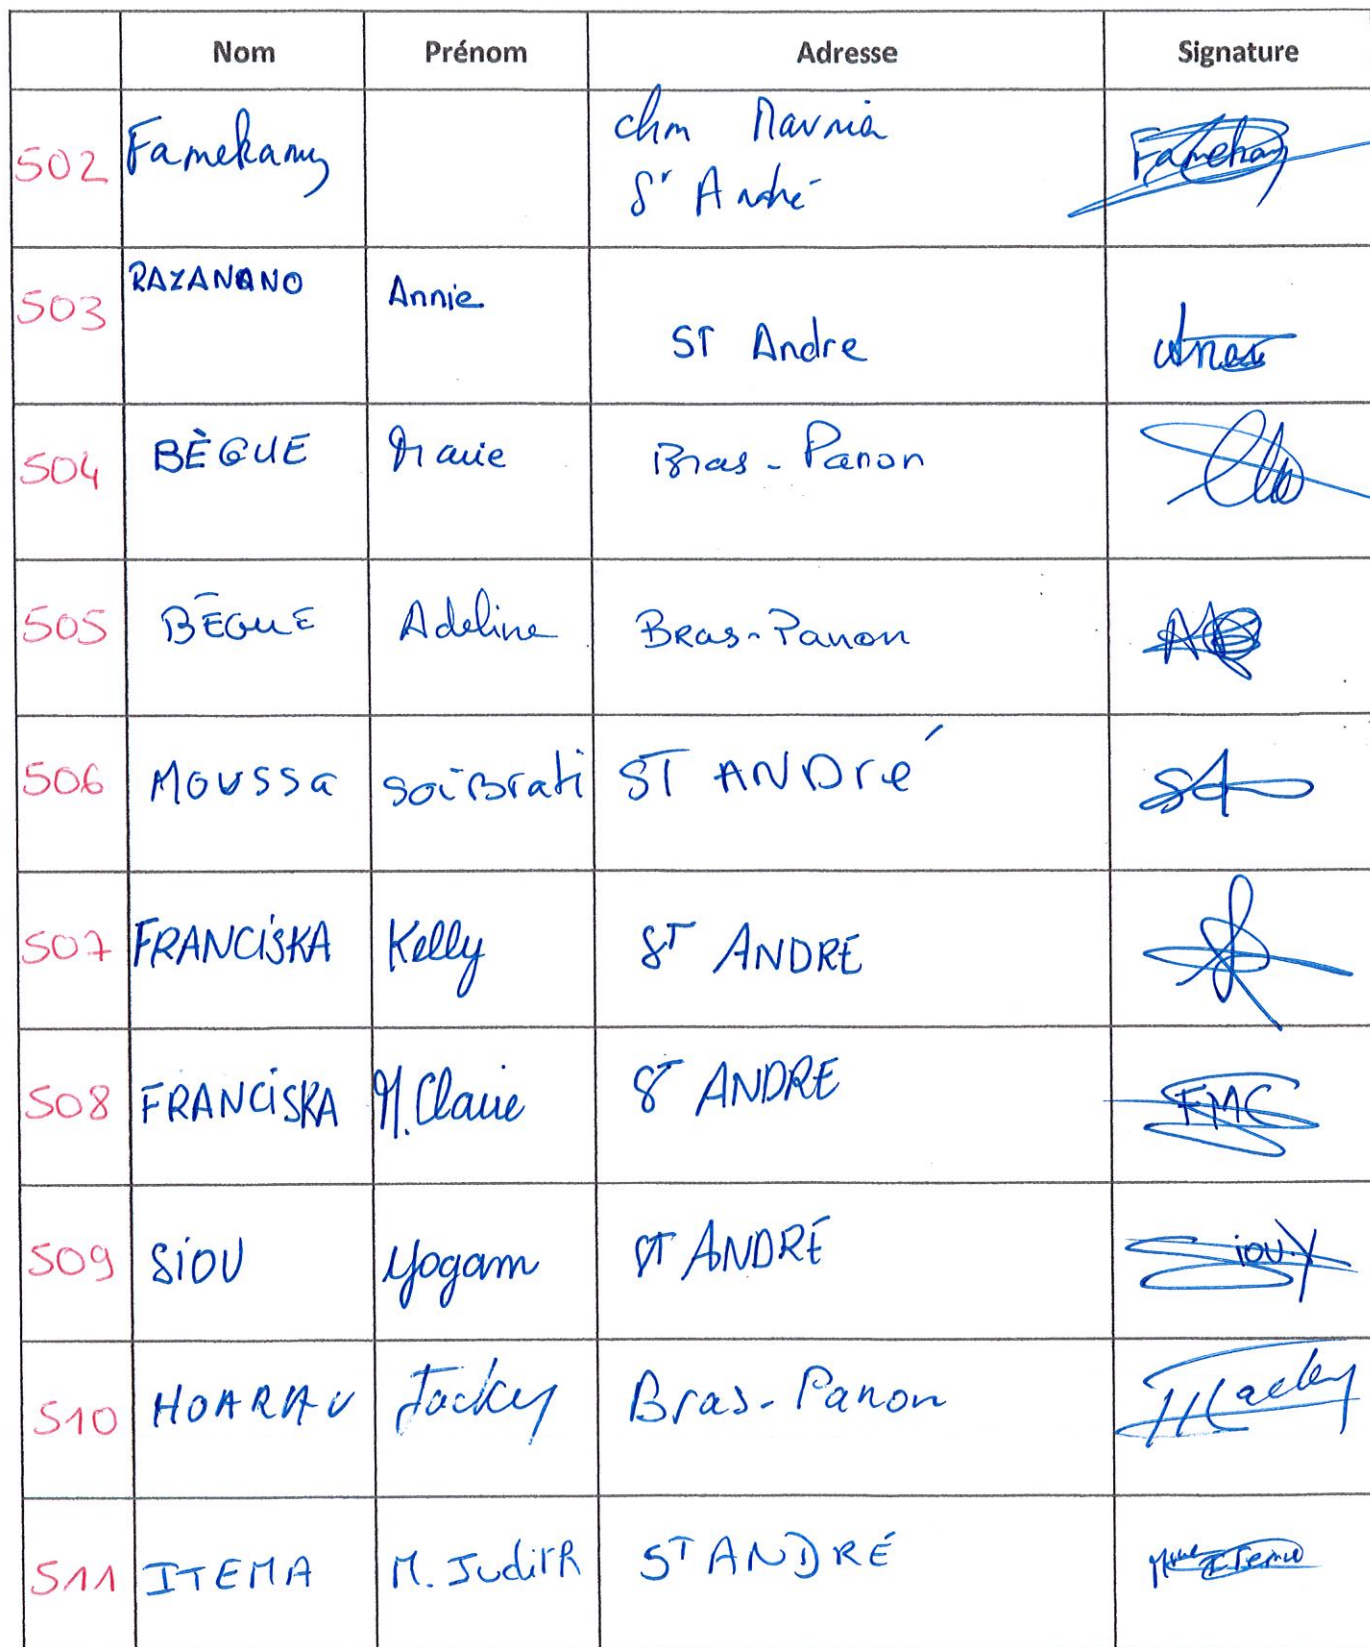 Nom Prénom Adresse Signature
502 Famekany chm Ravnia
St André
503 RAZANANO Annie ST Andre
504 BÈGUE Marie Bras-Panon
505 BÉGUE Adeline Bras-Panon
506 MOUSSa SoiBrati ST ANDré
507 FRANCISKA Kelly ST ANDRE SK
508 FRANCISKA M.Claire ST ANDRE FMC
509 SIOU Yogam ST ANDRÉ Siou.Y
510 HOARAU Jacky Bras-Panon
511 ITEMA M. Judith ST ANDRÉ